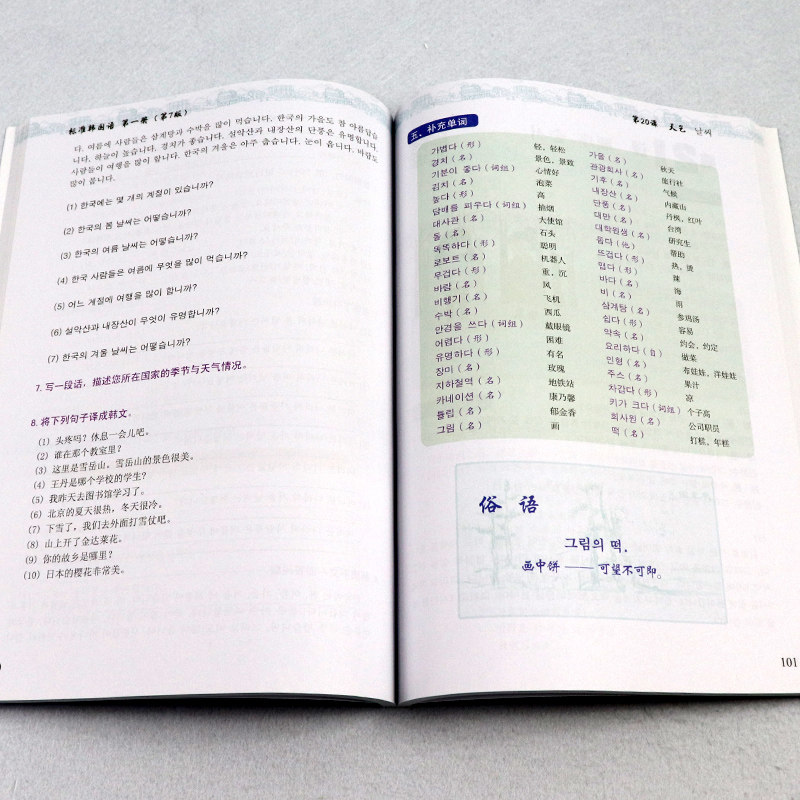 标准韩国语 第一册（第7版）
다. 여름에 사람들은 삼계탕과 수박을 많이 먹습니다. 한국의 가을도 참 아름답습니
다. 하늘이 높습니다. 경치가 좋습니다. 설악산과 내장산의 단풍은 유명합니다.
사람들이 여행을 많이 합니다. 한국의 겨울은 아주 춥습니다. 눈이 옵니다. 바람도
많이 붑니다.
(1) 한국에는 몇 개의 계절이 있습니까?
(2) 한국의 봄 날씨는 어떻습니까?
(3) 한국의 여름 날씨는 어떻습니까?
(4) 한국 사람들은 여름에 무엇을 많이 먹습니까?
(5) 어느 계절에 여행을 많이 합니까?
(6) 설악산과 내장산이 무엇이 유명합니까?
(7) 한국의 겨울 날씨는 어떻습니까?
7. 写一段话，描述您所在国家的季节与天气情况。
8. 将下列句子译成韩文。
(1) 头疼吗？休息一会儿吧。
(2) 谁在那个教室里？
(3) 这里是雪岳山，雪岳山的景色很美。
(4) 王丹是哪个学校的学生？
(5) 我昨天去图书馆学习了。
(6) 北京的夏天很热，冬天很冷。
(7) 下雪了，我们去外面打雪仗吧。
(8) 山上开了金达莱花。
(9) 你的故乡是哪里？
(10) 日本的樱花非常美。
第20课 天气 날씨
五、补充单词
가볍다（形） 轻，轻松
경치（名） 景色，景致
기분이 좋다（词组） 心情好
김치（名） 泡菜
높다（形） 高
담배를 피우다（词组） 抽烟
대사관（名） 大使馆
돌（名） 石头
똑똑하다（形） 聪明
로보트（名） 机器人
무겁다（形） 重，沉
바람（名） 风
비행기（名） 飞机
수박（名） 西瓜
안경을 쓰다（词组） 戴眼镜
어렵다（形） 困难
유명하다（形） 有名
장미（名） 玫瑰
지하철역（名） 地铁站
카네이션（名） 康乃馨
튤립（名） 郁金香
그림（名） 画
가을（名） 秋天
관광회사（名） 旅行社
기후（名） 气候
내장산（名） 内藏山
단풍（名） 丹枫，红叶
대만（名） 台湾
대학원생（名） 研究生
돕다（他） 帮助
뜨겁다（形） 热，烫
맵다（形） 辣
바다（名） 海
비（名） 雨
삼계탕（名） 参鸡汤
쉽다（形） 容易
약속（名） 约会，约定
요리하다（自） 做菜
인형（名） 布娃娃，洋娃娃
주스（名） 果汁
차갑다（形） 凉
키가 크다（词组） 个子高
회사원（名） 公司职员
떡（名） 打糕，年糕
俗 语
그림의 떡.
画中饼 —— 可望不可即。
101